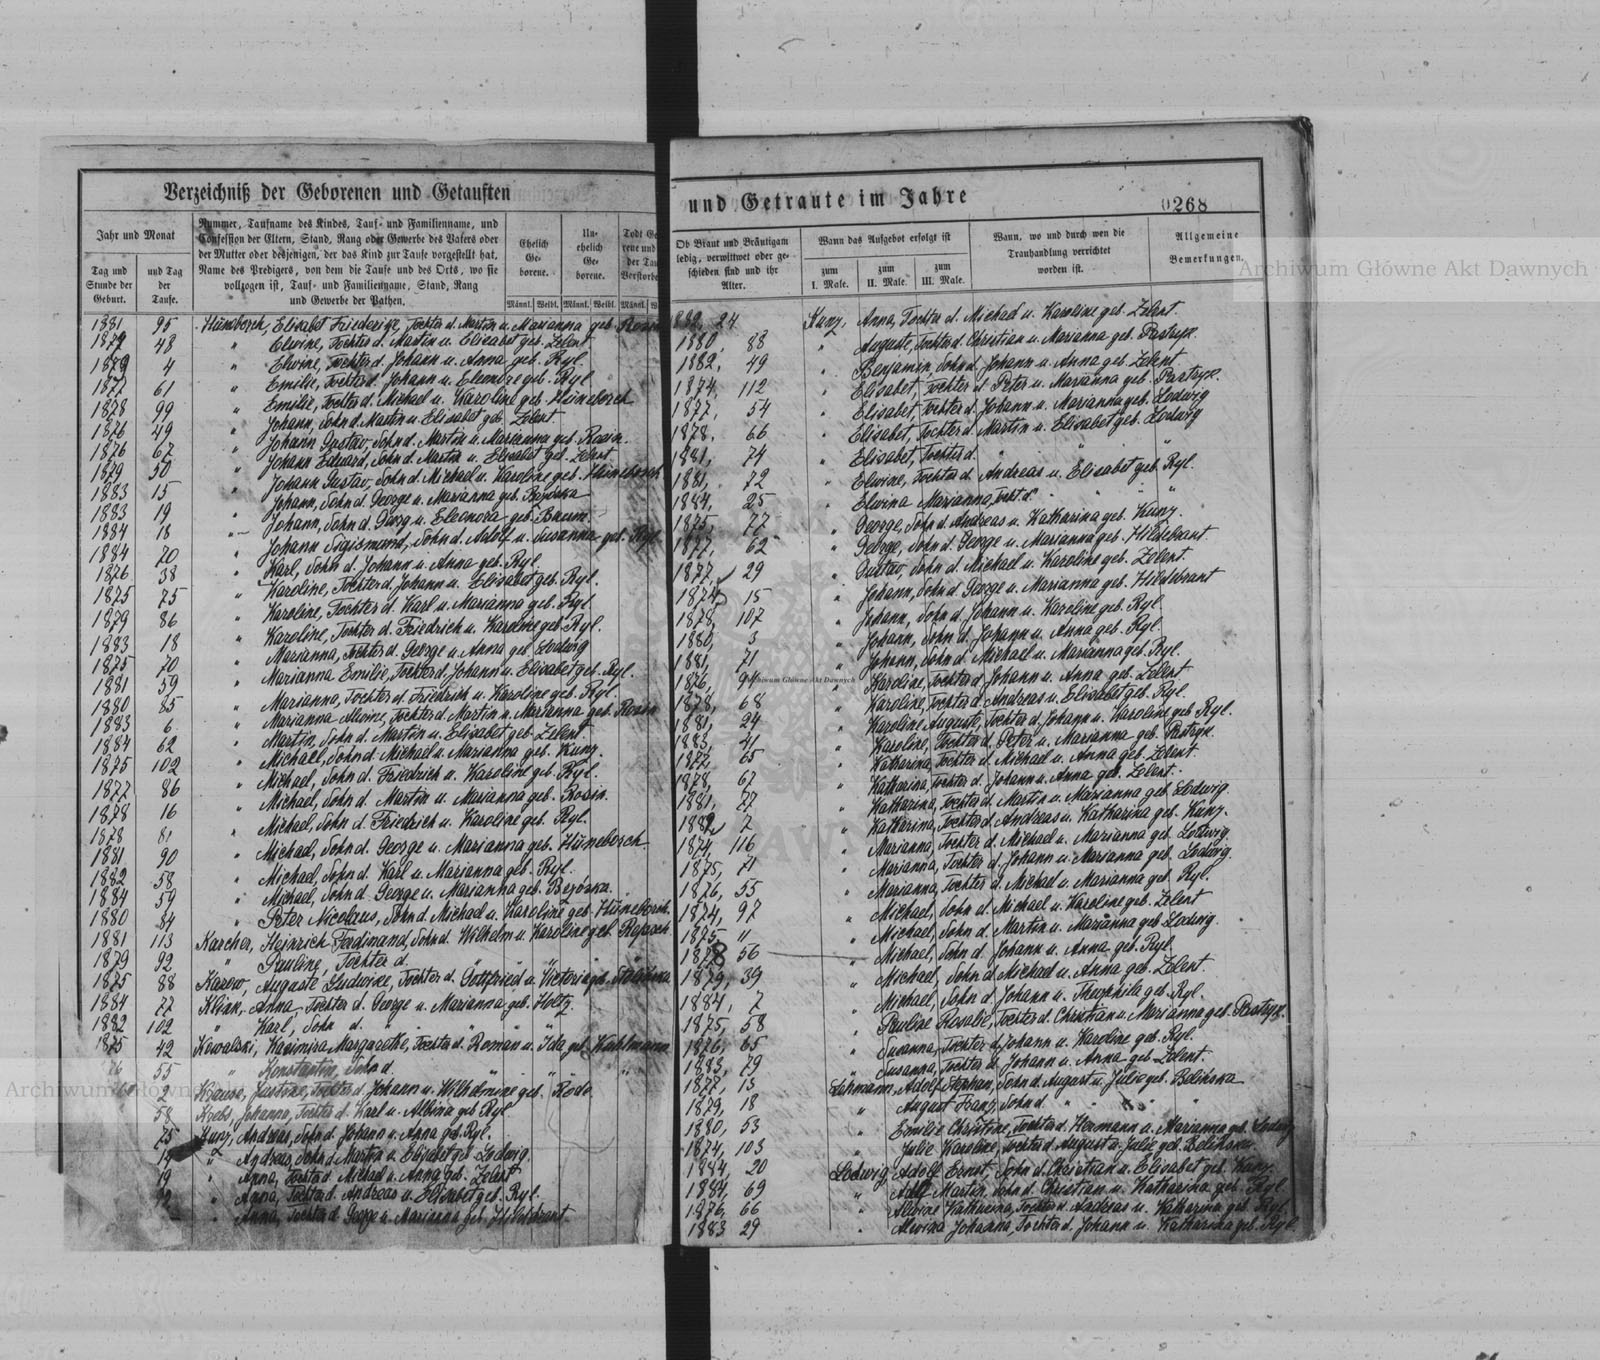 Verzeichniß der Geborenen und Getauften
Jahr und Monat
Tag und Stunde der Geburt.
und Tag der Taufe.
Nummer, Taufname des Kindes, Tauf- und Familienname, und
Confession der Eltern, Stand, Rang oder Gewerbe des Vaters oder
der Mutter oder desjenigen, der das Kind zur Taufe vorgestellt hat.
Name des Predigers, von dem die Taufe und des Orts, wo sie
vollzogen ist, Tauf- und Familienname, Stand, Rang
und Gewerbe der Pathen.
Ehelich Geborene.
Unehelich Geborene.
Männl. Weibl. Männl. Weibl. Männl.
1881 95 Hüneborch, Elisabet Friederike, Tochter d. Martin u. Marianna geb. Rosin
1872 48 " Elwine, Tochter d. Martin u. Elisabet geb. Zelent
1879 4 " Elwine, Tochter d. Johann u. Anna geb. Ryl
1877 61 " Emilie, Tochter d. Johann u. Eleonore geb. Ryl
1878 99 " Emilie, Tochter d. Michael u. Karoline geb. Hüneborch
1876 49 " Johann, Sohn d. Martin u. Elisabet geb. Zelent
1876 67 " Johann Gustav, Sohn d. Martin u. Marianna geb. Rosin.
1879 50 " Johann Eduard, Sohn d. Martin u. Elisabet geb. Zelent
1883 15 " Johann Gustav, Sohn d. Michael u. Karoline geb. Hüneborch
1883 19 " Johann, Sohn d. George u. Marianna geb.
1884 18 " Johann, Sohn d. Georg u. Eleonora geb. Baum
1884 70 " Johann Sigismund, Sohn d. Adolf u. Susanna geb. Ryl
1876 38 " Karl, Sohn d. Johann u. Anna geb. Ryl.
1875 75 " Karoline, Tochter d. Johann u. Elisabet geb. Ryl.
1879 86 " Karoline, Tochter d. Karl u. Marianna geb. Ryl
1883 18 " Karoline, Tochter d. Friedrich u. Karoline geb. Ryl.
1875 70 " Marianna, Tochter d. George u. Anna geb. Lodwig
1881 59 " Marianna Emilie, Tochter d. Johann u. Elisabet geb. Ryl.
1880 85 " Marianna, Tochter d. Friedrich u. Karoline geb. Ryl.
1883 6 " Marianna Alwine, Tochter d. Martin u. Marianna geb. Rosin
1884 62 " Martin, Sohn d. Martin u. Elisabet geb. Zelent
1875 102 " Michael, Sohn d. Michael u. Marianna geb. Kunz.
1877 86 " Michael, Sohn d. Friedrich u. Karoline geb. Ryl.
1878 16 " Michael, Sohn d. Martin u. Marianna geb. Rosin.
1878 81 " Michael, Sohn d. Friedrich u. Karoline geb. Ryl.
1881 90 " Michael, Sohn d. George u. Marianna geb. Hüneborch
1882 58 " Michael, Sohn d. Karl u. Marianna geb. Ryl.
1884 59 " Michael, Sohn d. George u. Marianna geb.
1880 84 " Peter Nicolaus, Sohn d. Michael u. Karoline geb. Hüneborch.
1881 113 Karcher, Heinrich Ferdinand, Sohn d. Wilhelm u. Karoline geb.
1879 92 " Pauline, Tochter d. " " "
1875 88 Karow, Auguste Ludwike, Tochter d. Gottfried u. Victoria geb.
1884 77 Klinn, Anna Tochter d. George u. Marianna geb. Holtz.
1882 102 " Karl, Sohn d. " " " "
1875 42 Kowalski, Kasimira Margarethe, Tochter d. Roman u. Ida geb. Kuhlmann
76 55 " Konstantin, Sohn d. " " "
2 Krause, Justine, Tochter d. Johann u. Wilhelmine geb. Rode.
58 Krebs, Johanna, Tochter d. Karl u. Albina geb. Ryl
75 Kunz, Andreas, Sohn d. Johann u. Anna geb. Ryl.
14 " Andreas, Sohn d. Martin u. Elisabet geb. Lodwig.
19 " Anna, Tochter d. Michael u. Anna geb. Zelent
" Anna, Tochter d. Andreas u. Elisabet geb. Ryl.
" Anna, Tochter d. George u. Marianna geb. Hildebrant
und Getraute im Jahre
0268
Ob Braut und Bräutigam
ledig, verwittwet oder geschieden
sind und ihr
Alter.
Wann das Aufgebot erfolgt ist
zum I. Male. zum II. Male. zum III. Male.
Wann, wo und durch wen die
Trauhandlung verrichtet
worden ist.
Allgemeine
Bemerkungen.
1882, 24 Kunz, Anna, Tochter d. Michael u. Karoline geb. Zelent.
1880, 88 " Auguste, Tochter d. Christian u. Marianna geb. Pastryk.
1882, 49 " Benjamin, Sohn d. Johann u. Anna geb. Zelent
1874, 112 " Elisabet, Tochter d. Peter u. Marianna geb. Pastryk.
1877, 54 " Elisabet, Tochter d. Johann u. Marianna geb. Lodwig
1878, 66 " Elisabet, Tochter d. Martin u. Elisabet geb. Lodwig
1881, 74 " Elisabet, Tochter d. " " "
1881, 72 " Elwine, Tochter d. Andreas u. Elisabet geb. Ryl.
1884, 25 " Elwina Marianna, Tocht. d. " " " "
1875, 77 " George, Sohn d. Andreas u. Katharina geb. Kunz.
1877, 62 " George, Sohn d. George u. Marianna geb. Hildebrant.
1877, 29 " Gustav, Sohn d. Michael u. Karoline geb. Zelent.
1874, 15 " Johann, Sohn d. George u. Marianna geb. Hildebrant
1878, 107 " Johann, Sohn d. Johann u. Karoline geb. Ryl.
1880, 3 " Johann, Sohn d. Johann u. Anna geb. Ryl.
1881, 71 " Johann, Sohn d. Michael u. Marianna geb. Ryl.
1876, 94 " Karoline, Tochter d. Johann u. Anna geb. Zelent
1878, 68 " Karoline, Tochter d. Andreas u. Elisabet geb. Ryl.
1881, 24 " Karoline Auguste, Tochter d. Johann u. Karoline geb. Ryl.
1883, 41 " Karoline, Tochter d. Peter u. Marianna geb. Pastryk.
1877, 65 " Katharina, Tochter d. Michael u. Anna geb. Zelent.
1878, 67 " Katharina, Tochter d. Johann u. Anna geb. Zelent.
1881, 77 " Katharina, Tochter d. Martin u. Marianna geb. Lodwig.
1882, 7 " Katharina, Tochter d. Andreas u. Katharina geb. Kunz.
1874, 116 " Marianna, Tochter d. Michael u. Marianna geb. Lodwig.
1875, 71 " Marianna, Tochter d. Johann u. Marianna geb. Lodwig.
1876, 55 " Marianna, Tochter d. Michael u. Marianna geb. Ryl.
1874, 97 " Michael, Sohn d. Michael u. Karoline geb. Zelent
1875, 11 " Michael, Sohn d. Martin u. Marianna geb. Lodwig.
1878 56 " Michael, Sohn d. Johann u. Anna geb. Ryl.
1879, 39 " Michael, Sohn d. Michael u. Anna geb. Zelent.
1884, 7 " Michael, Sohn d. Johann u. Theophila geb. Ryl.
1875, 58 " Pauline Rosalie, Tochter d. Christian u. Marianna geb. Pastryk.
1876, 65 " Susanna, Tochter d. Johann u. Karoline geb. Ryl.
1883, 79 " Susanna, Tochter d. Johann u. Anna geb. Zelent.
1877, 15 Lehmann, Adolf Stephan, Sohn d. August u. Julie geb. Belinska
1879, 18 " August Franz, Sohn d. " " "
1880, 53 " Emilie Christine, Tochter d. Hermann u. Marianna geb. Lodwig
1874, 103 " Julie Karoline, Tochter d. August u. Julie geb. Belinska.
1884, 20 Lodwig, Adolf Ernst, Sohn d. Christian u. Elisabet geb. Kunz.
1884, 69 " Adolf Martin, Sohn d. Christian u. Katharina geb. Ryl
1876, 66 " Alwine Katharina, Tochter d. Andreas u. Katharina geb. Ryl.
1883 29 " Alwina Johanna, Tochter d. Johann u. Katharina geb. Ryl
Archiwum Główne Akt Dawnych
Archiwum Główne Akt Dawnych
Archiwum Główne Akt Dawnych